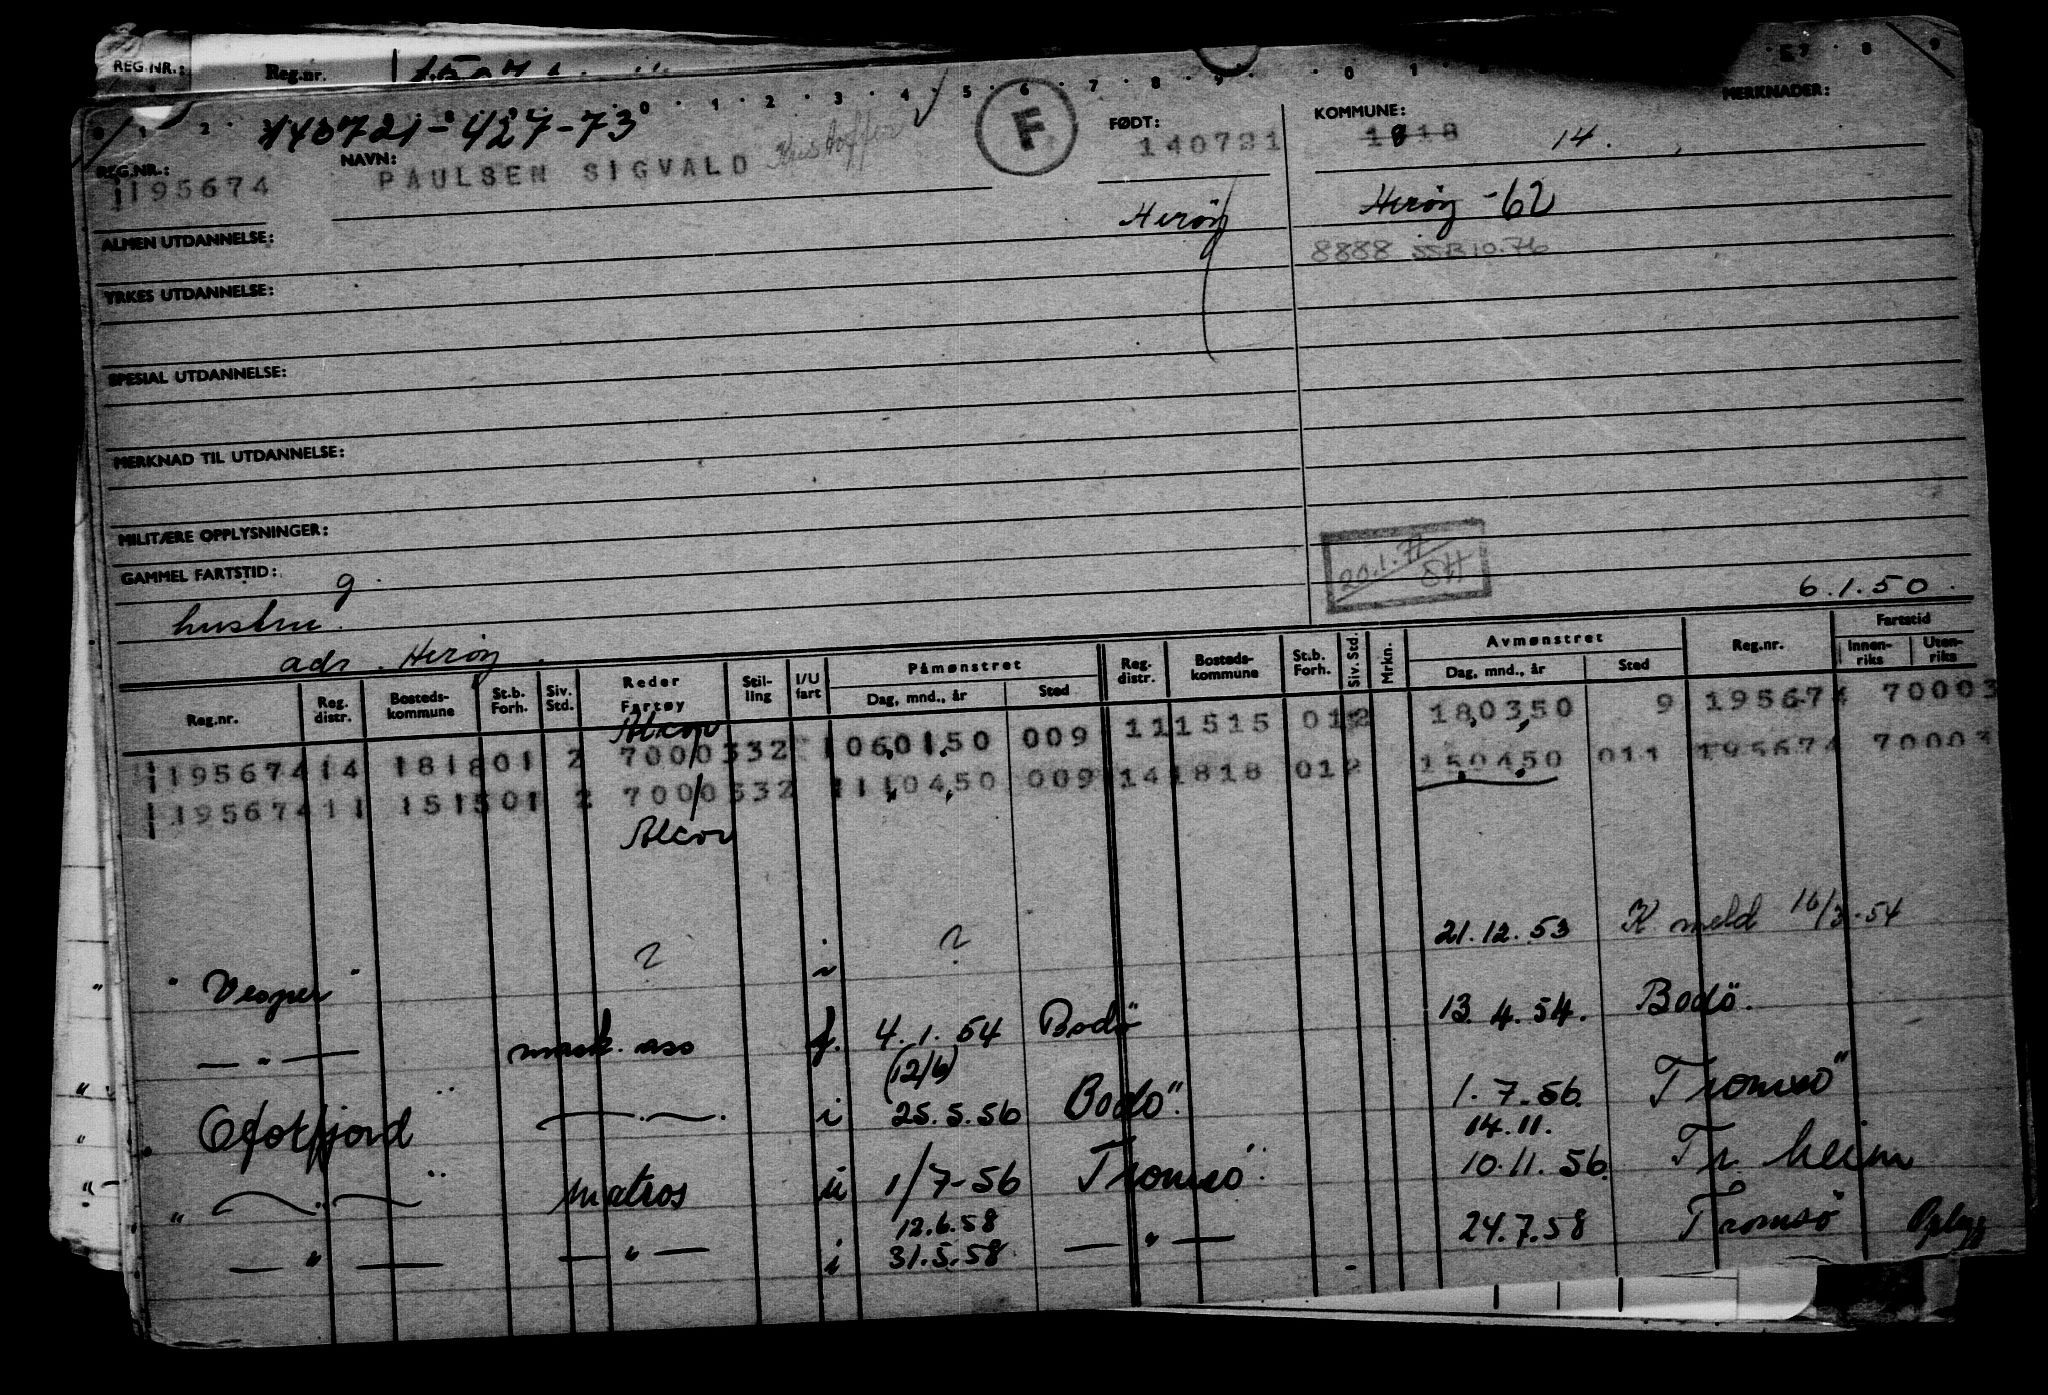 REG.NR.: Reg.nr.
140721-427-73
REG.NR.: NAVN: FØDT: KOMMUNE: MERKNADER:
195674 PAULSEN SIGVALD Kristoffer F 140721 1818 14.
Herøy Herøy -62
ALMEN UTDANNELSE: 8888 SSB 10.76
YRKES UTDANNELSE:
SPESIAL UTDANNELSE:
MERKNAD TIL UTDANNELSE:
MILITÆRE OPPLYSNINGER:
20.1.71
GAMMEL FARTSTID: g.
hustru. 6.1.50.
adr. Herøy.
Reg.nr. Reg. distr. Bosteds-kommune St.b. Forh. Siv. Std. Reder Fartøy Stil-ling I/U fart Påmønstret Dag, mnd., år Sted Reg. distr. Bosteds-kommune St.b. Forh. Siv. Std. Mrkn. Avmønstret Dag, mnd., år Sted Reg.nr. Fartstid Innen-riks Uten-riks
Alcov
195674 14 1818 01 2 7000532 1 060150 009 11 1515 01 2 180350 9 195674 70003
195674 11 1515 01 2 7000532 1 110450 009 14 1818 01 2 150450 011 195674 70003
Alcov
"Vesper" ? ? 21.12.53 K meld 16/3-54
— " — mask. ass f. 4.1.54 Bodö 13.4.54. Bodö.
(12/6)
"Ofotfjord" — i 25.5.56 Bodö. 1.7.56. Tromsö
14.11.
" — " — matros u 1/7-56 Tromsö. 10.11.56. Tr.heim
12.6.58
— " — — " — i 31.5.58 — " — 24.7.58 Tromsö Oplagg